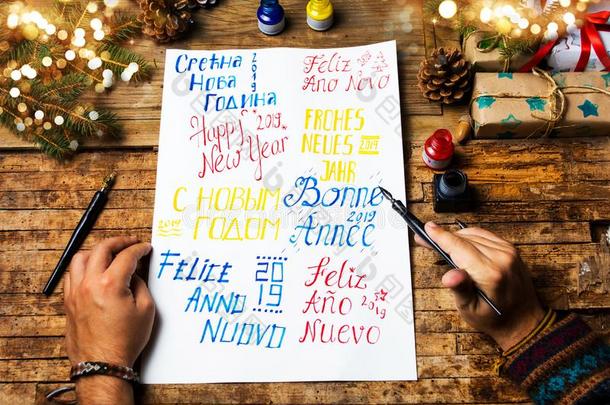 Сретна 2019
Нова
Година
Feliz
Ano Novo
Happy 2019
New Year
FROHES
NEUES 2019
JAHR
С НОВЫМ
2019 ГОДОМ
Bonne
2019
Année
FELICE 2019
ANNO
NUOVO
Feliz
Año 2019
Nuevo